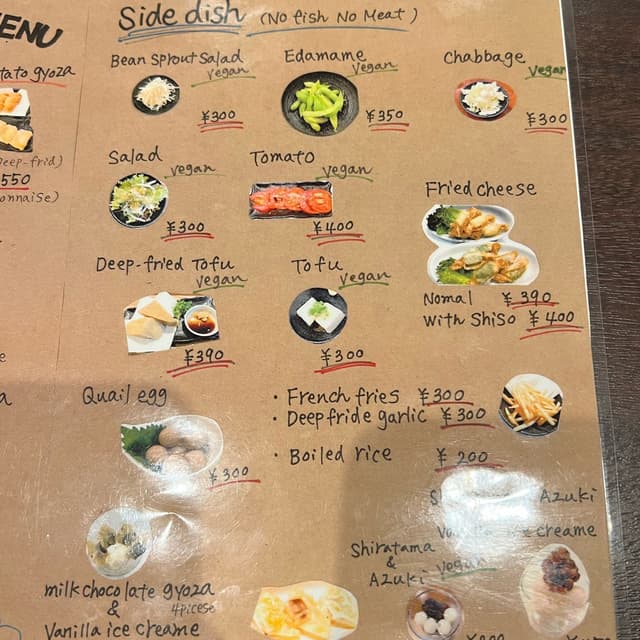 MENU
Side dish (No fish No Meat)
tato gyoza
Bean Sprout Salad
vegan
¥300
Edamame
vegan
¥350
Chabbage
vegan
¥300
Deep-frid)
550
onnaise)
Salad
vegan
¥300
Tomato
vegan
¥400
Fried cheese
Nomal ¥390
with Shiso ¥400
Deep-fried Tofu
vegan
¥390
Tofu
vegan
¥300
Quail egg
¥300
・French fries ¥300
・Deepfride garlic ¥300
・Boiled rice ¥200
Azuki
Vanilla ice creame
Shiratama
&
Azuki
vegan
milk chocolate gyoza
4picese
&
Vanilla ice creame